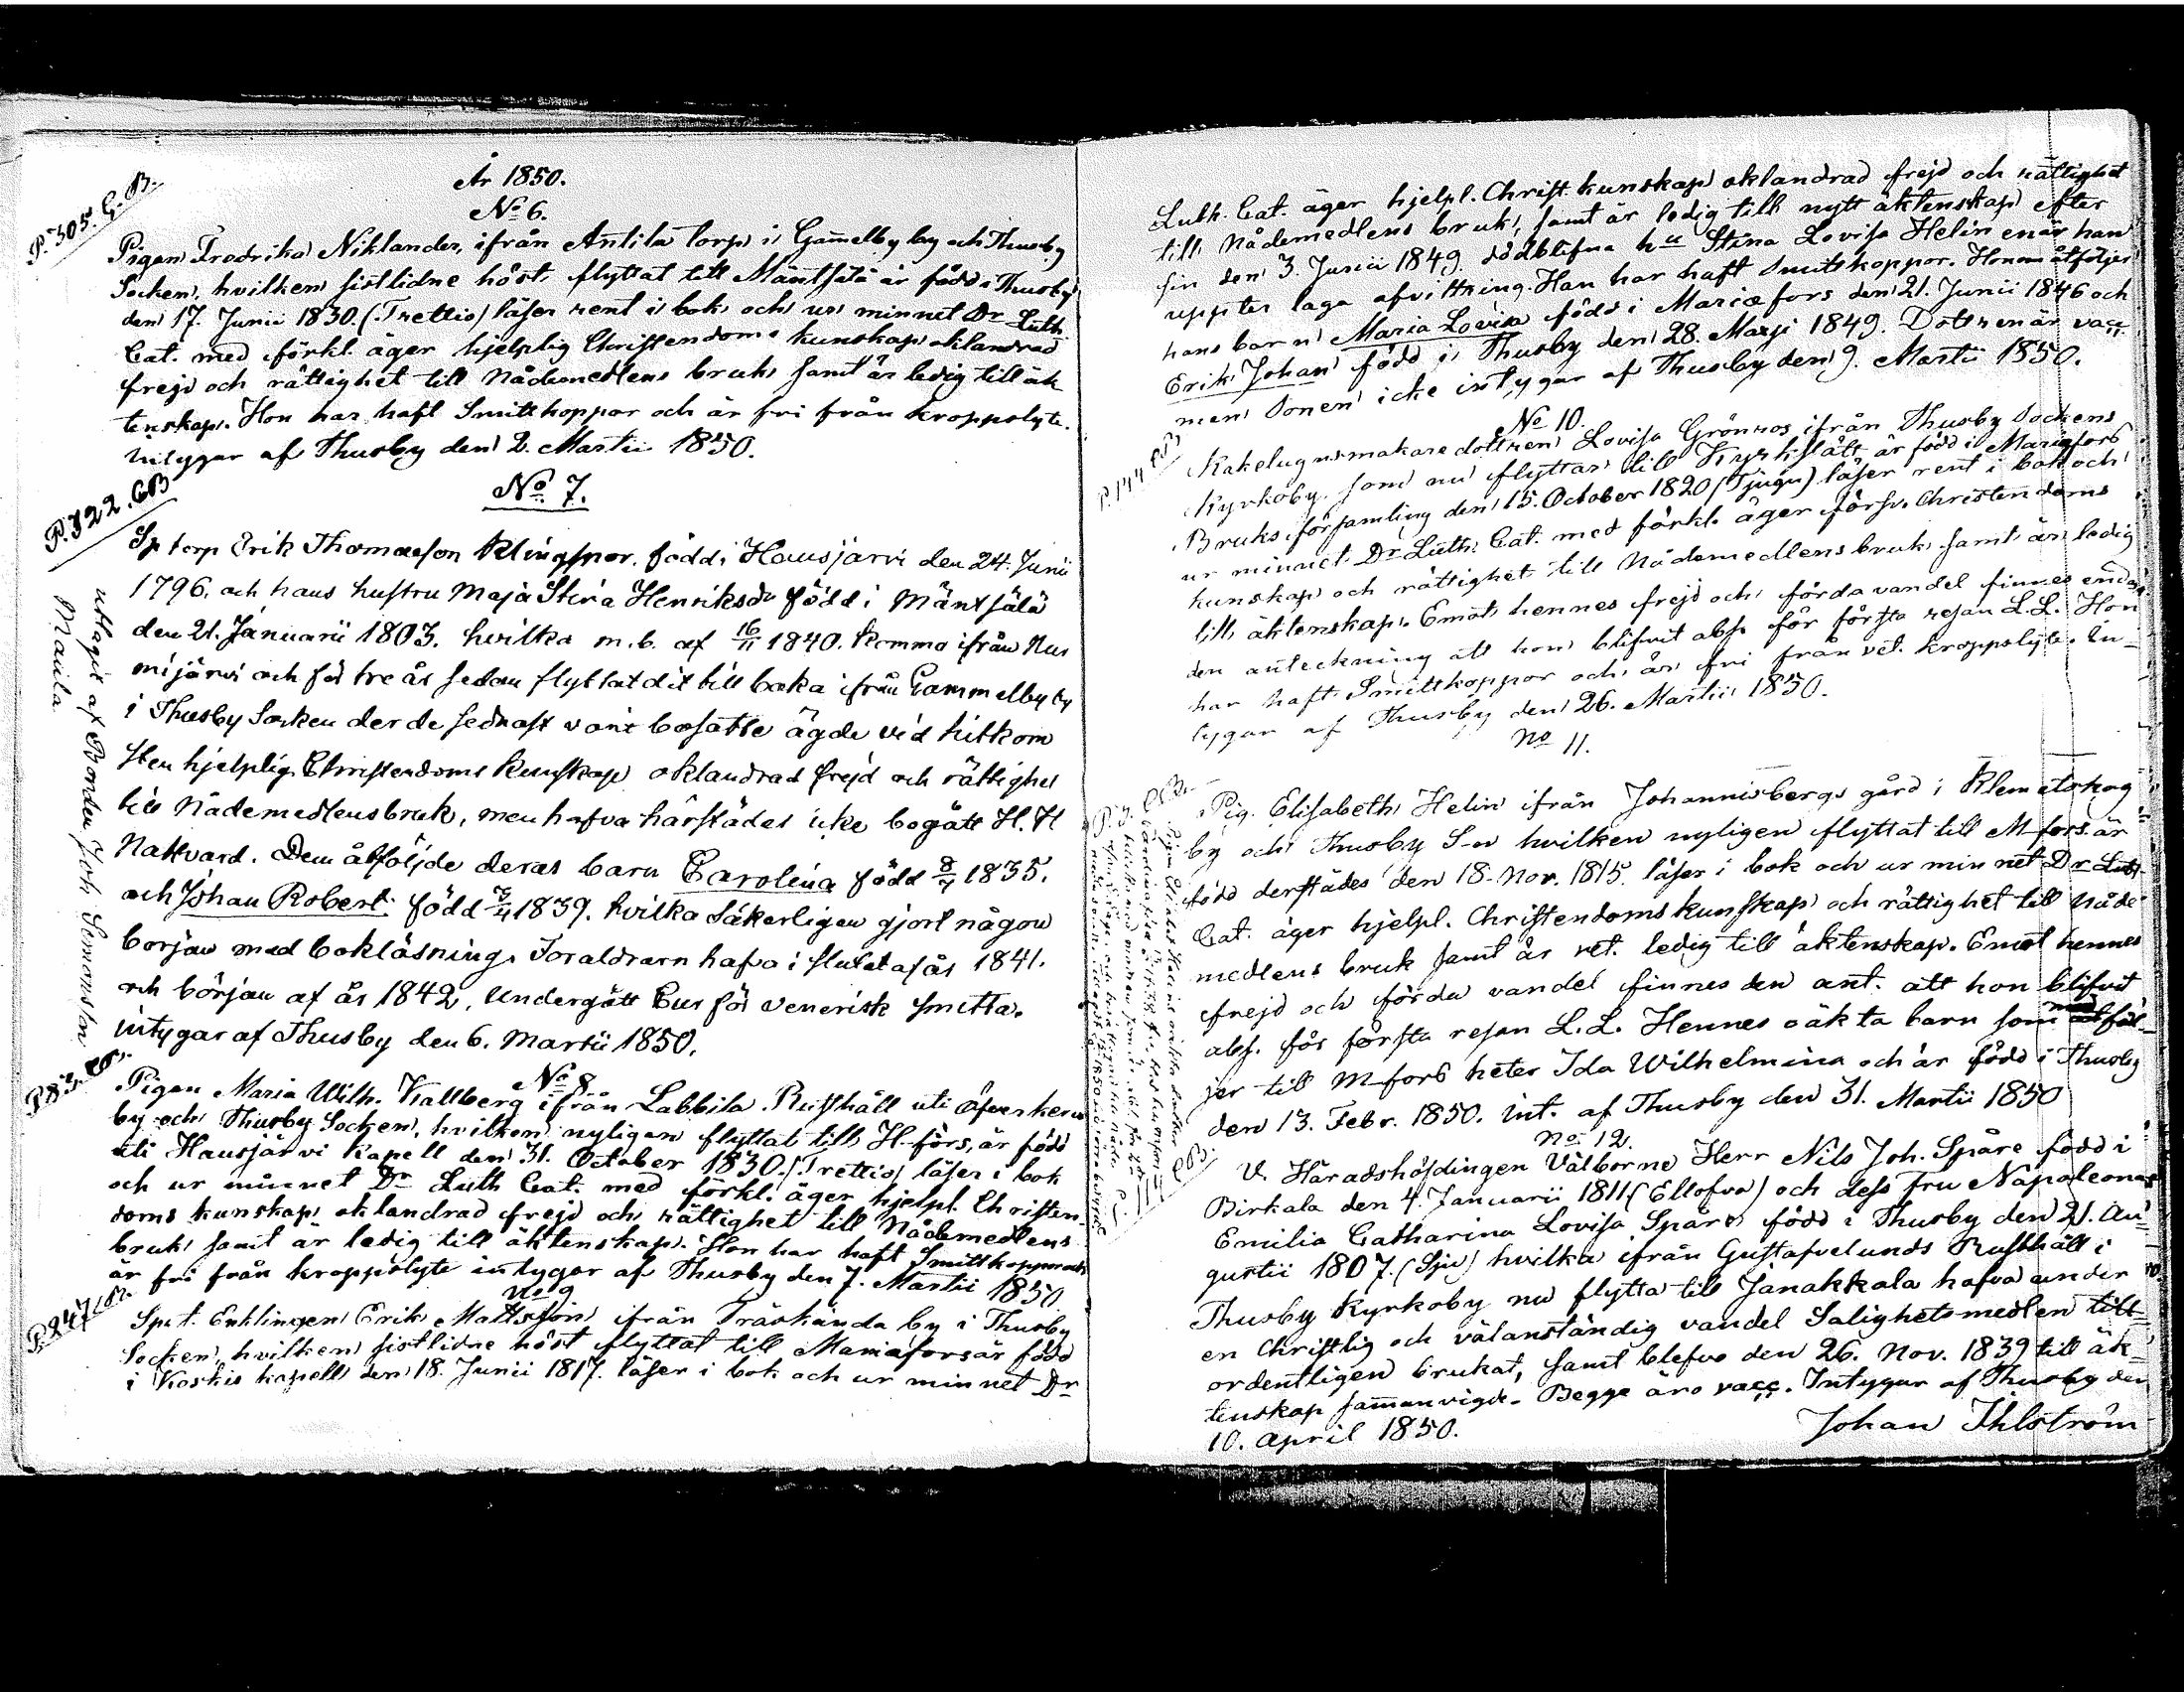 År 1850.
No 6.
P. 305. G. B.
Pigan Fredrika Niklander, ifrån Antila torp i Gam̄elby by och Thusby
Socken, hvilken sistlidne höst flyttat till Mäntsälä är född i Thusby
den 17. Junii 1830. (Trettio) läser rent i bok och ur minnet Dr Luth
Cat. med förkl. äger hjelplig Christendoms kunskap oklandrad
frejd och rättighet till Nådemedlens bruk samt är ledig till äk
tenskap. Hon har haft Smittkoppor och är fri från kroppslyte.
intygar af Thusby den 2. Martii 1850.
No 7.
P. 322. GB
Sp torp Erik Thomasson Klingspor. född i Hausjärvi den 24. Junii
1796. och hans hustru Maja Stina Henriksdr född i Mäntsälä
den 21. Januarii 1803. hvilka m. b. af 16/11 1840. komma ifrån Nur
mijärvi och för tre år sedan flyttat dit tillbaka ifrån Gammelby by
i Thusby Socken der de sednast varit bosatte ägde vid hitkom
sten hjelplig Christendoms kunskap oklandrad frejd och rättighet
till Nådemedlens bruk, men hafva härstädes icke begått H. H
Nattvard. Dem åtföljde deras barn Carolina född 8/7 1835.
och Johan Robert född 3/4 1839. hvilka säkerligen gjort någon
början med bokläsning. Föraldrarn hafva i slutet af år 1841.
och början af år 1842, undergått Cur för venerisk smitta.
intygar af Thusby den 6. Martii 1850.
uttagit af Bonden Joh Simonsson
Mauila.
No 8.
P. 83.
Pigan Maria Wilh. Kallberg ifrån Labbila Rusthåll uti Öfverkerv
by och Thusby Socken, hvilken nyligen flyttat till H-fors, är född
uti Hausjärvi Kapell den 31. October 1830. (Trettio) läser i bok
och ur minnet Dr Luth Cat. med förkl. äger hjelpl. Christen
doms kunskap oklandrad frejd och rättighet till Nådemedlens
bruk samt är ledig till äktenskap. Hon har haft Smittkoppor och
är fri från kroppslyte intygar af Thusby den 7. Martii 1850
No 9
P. 247
Sp. t. Enklingen Erik Mattsson ifrån Träskända by i Thusby
Socken, hvilken sistlidne höst flyttat till Mariæfors är född
i Koskis kapell den 18. Junii 1817. läser i bok och ur minnet Dr
Luth. Cat. äger hjelpl. Christ. kunskap oklandrad frejd och rättighet
till Nådemedlens bruk, samt är ledig till nytt äktenskap efter
sin den 3. Junii 1849. dödblifna hu Stina Lovisa Helin enär han
uppter laga afvittring. Han har haft Smittkoppor. Honom åtföljer
hans barn Maria Lovisa född i Mariæfors den 21. Junii 1846 och
Erik Johan född i Thusby den 28. Maji 1849. Dottren är vacc.
men Sonen icke intygar af Thusby den 9. Martii 1850.
No 10.
P. 144
Kakelugnsmakare dottren Lovisa Grönros ifrån Thusby Sockens
Kyrkoby. som nu flyttar till Kyrkslätt är född i Mariæfors
Bruks församling den 15. October 1820 (Tjugu) läser rent i bok och
ur minnet Dr Luth. Cat. med förkl. äger försv. Christendoms
kunskap och rättighet till Nådemedlens bruk samt är ledig
till äktenskap. Emot hennes frejd och förda vandel finnes enda
den anteckning att hon blifvit abs. för första resan L. L. Hon
har haft Smittkoppor och är fri från vet. kroppslyte. In-
tygar af Thusby den 26. Martii 1850.
No 11.
Pig. Elisabeth Helin ifrån Johannisbergs gård i Klemetskog
by och Thusby S-n hvilken nyligen flyttat till M-fors är
född derstädes den 18. Nov. 1815. läser i bok och ur minnet Dr Luth.
Cat. äger hjelpl. Christendomskunskap och rättighet till Nåde
medlens bruk samt är vet. ledig till äktenskap. Emot hennes
frejd och förda vandel finnes den ant. att hon blifvit
abs. för första resan L. L. Hennes oäkta barn som åtföl-
jer till M-fors heter Ida Wilhelmina och är född i Thusby
den 13. Febr. 1850. int. af Thusby den 31. Martii 1850
No 12.
V. Häradshöfdingen Välborne Herr Nils Joh. Spåre född i
Birkala den 4. Januarii 1811 (Ellofva) och dess fru Napoleona
Emilia Catharina Lovisa Spåre född i Thusby den 21. Au-
gustii 1807. (Sju) hvilka ifrån Gustafvelunds Rusthåll i
Thusby Kyrkoby nu flytta till Janakkala hafva under
en Christlig och välanständig vandel Salighetsmedlen till
ordentligen brukat, samt blefvo den 26. Nov. 1839 till äk-
tenskap sam̄anvigde. Begge äro vacc. Intygar af Thusby den
10. April 1850.
Johan Ihlström